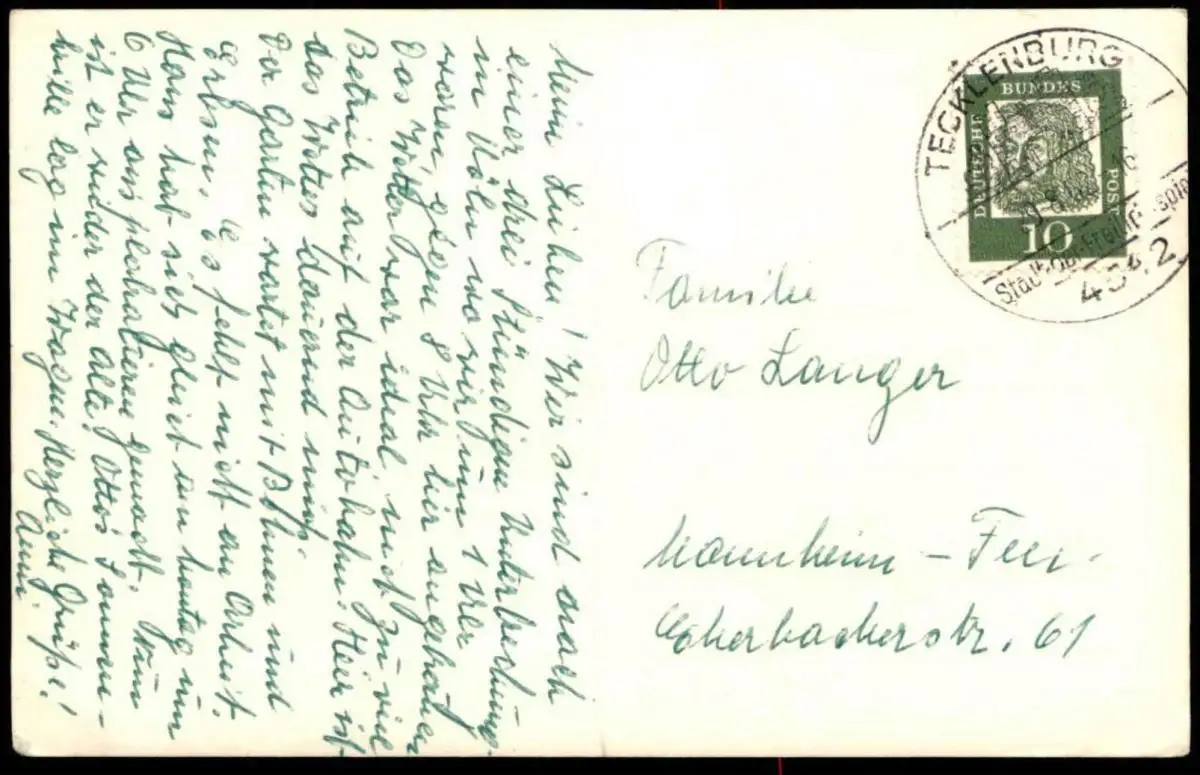 Meine Lieben! Wir sind nach
einer drei Stündigen Unterbrechung
in Köln wo wir um 1 Uhr
waren, gegen 8 Uhr hier angekommen
Das Wetter war ideal nicht zu viel
Betrieb auf der Autobahn. Hier ist
das Wetter dauernd mies.
Der Garten wartet mit Bohnen und
Erbsen. Es fehlt nicht an Arbeit.
Hans hat sich gleich am Montag um
6 Uhr ausplatzieren gemacht. Nun
ist er wieder der Alte, Ottos Sonnen-
brille lag im Wagen. Herzliche Grüße!
Anni.
Familie
Otto Langer
Mannheim - Feu.
Eberbacherstr. 61
TECKLENBURG
4542
DEUTSCHE BUNDESPOST
10